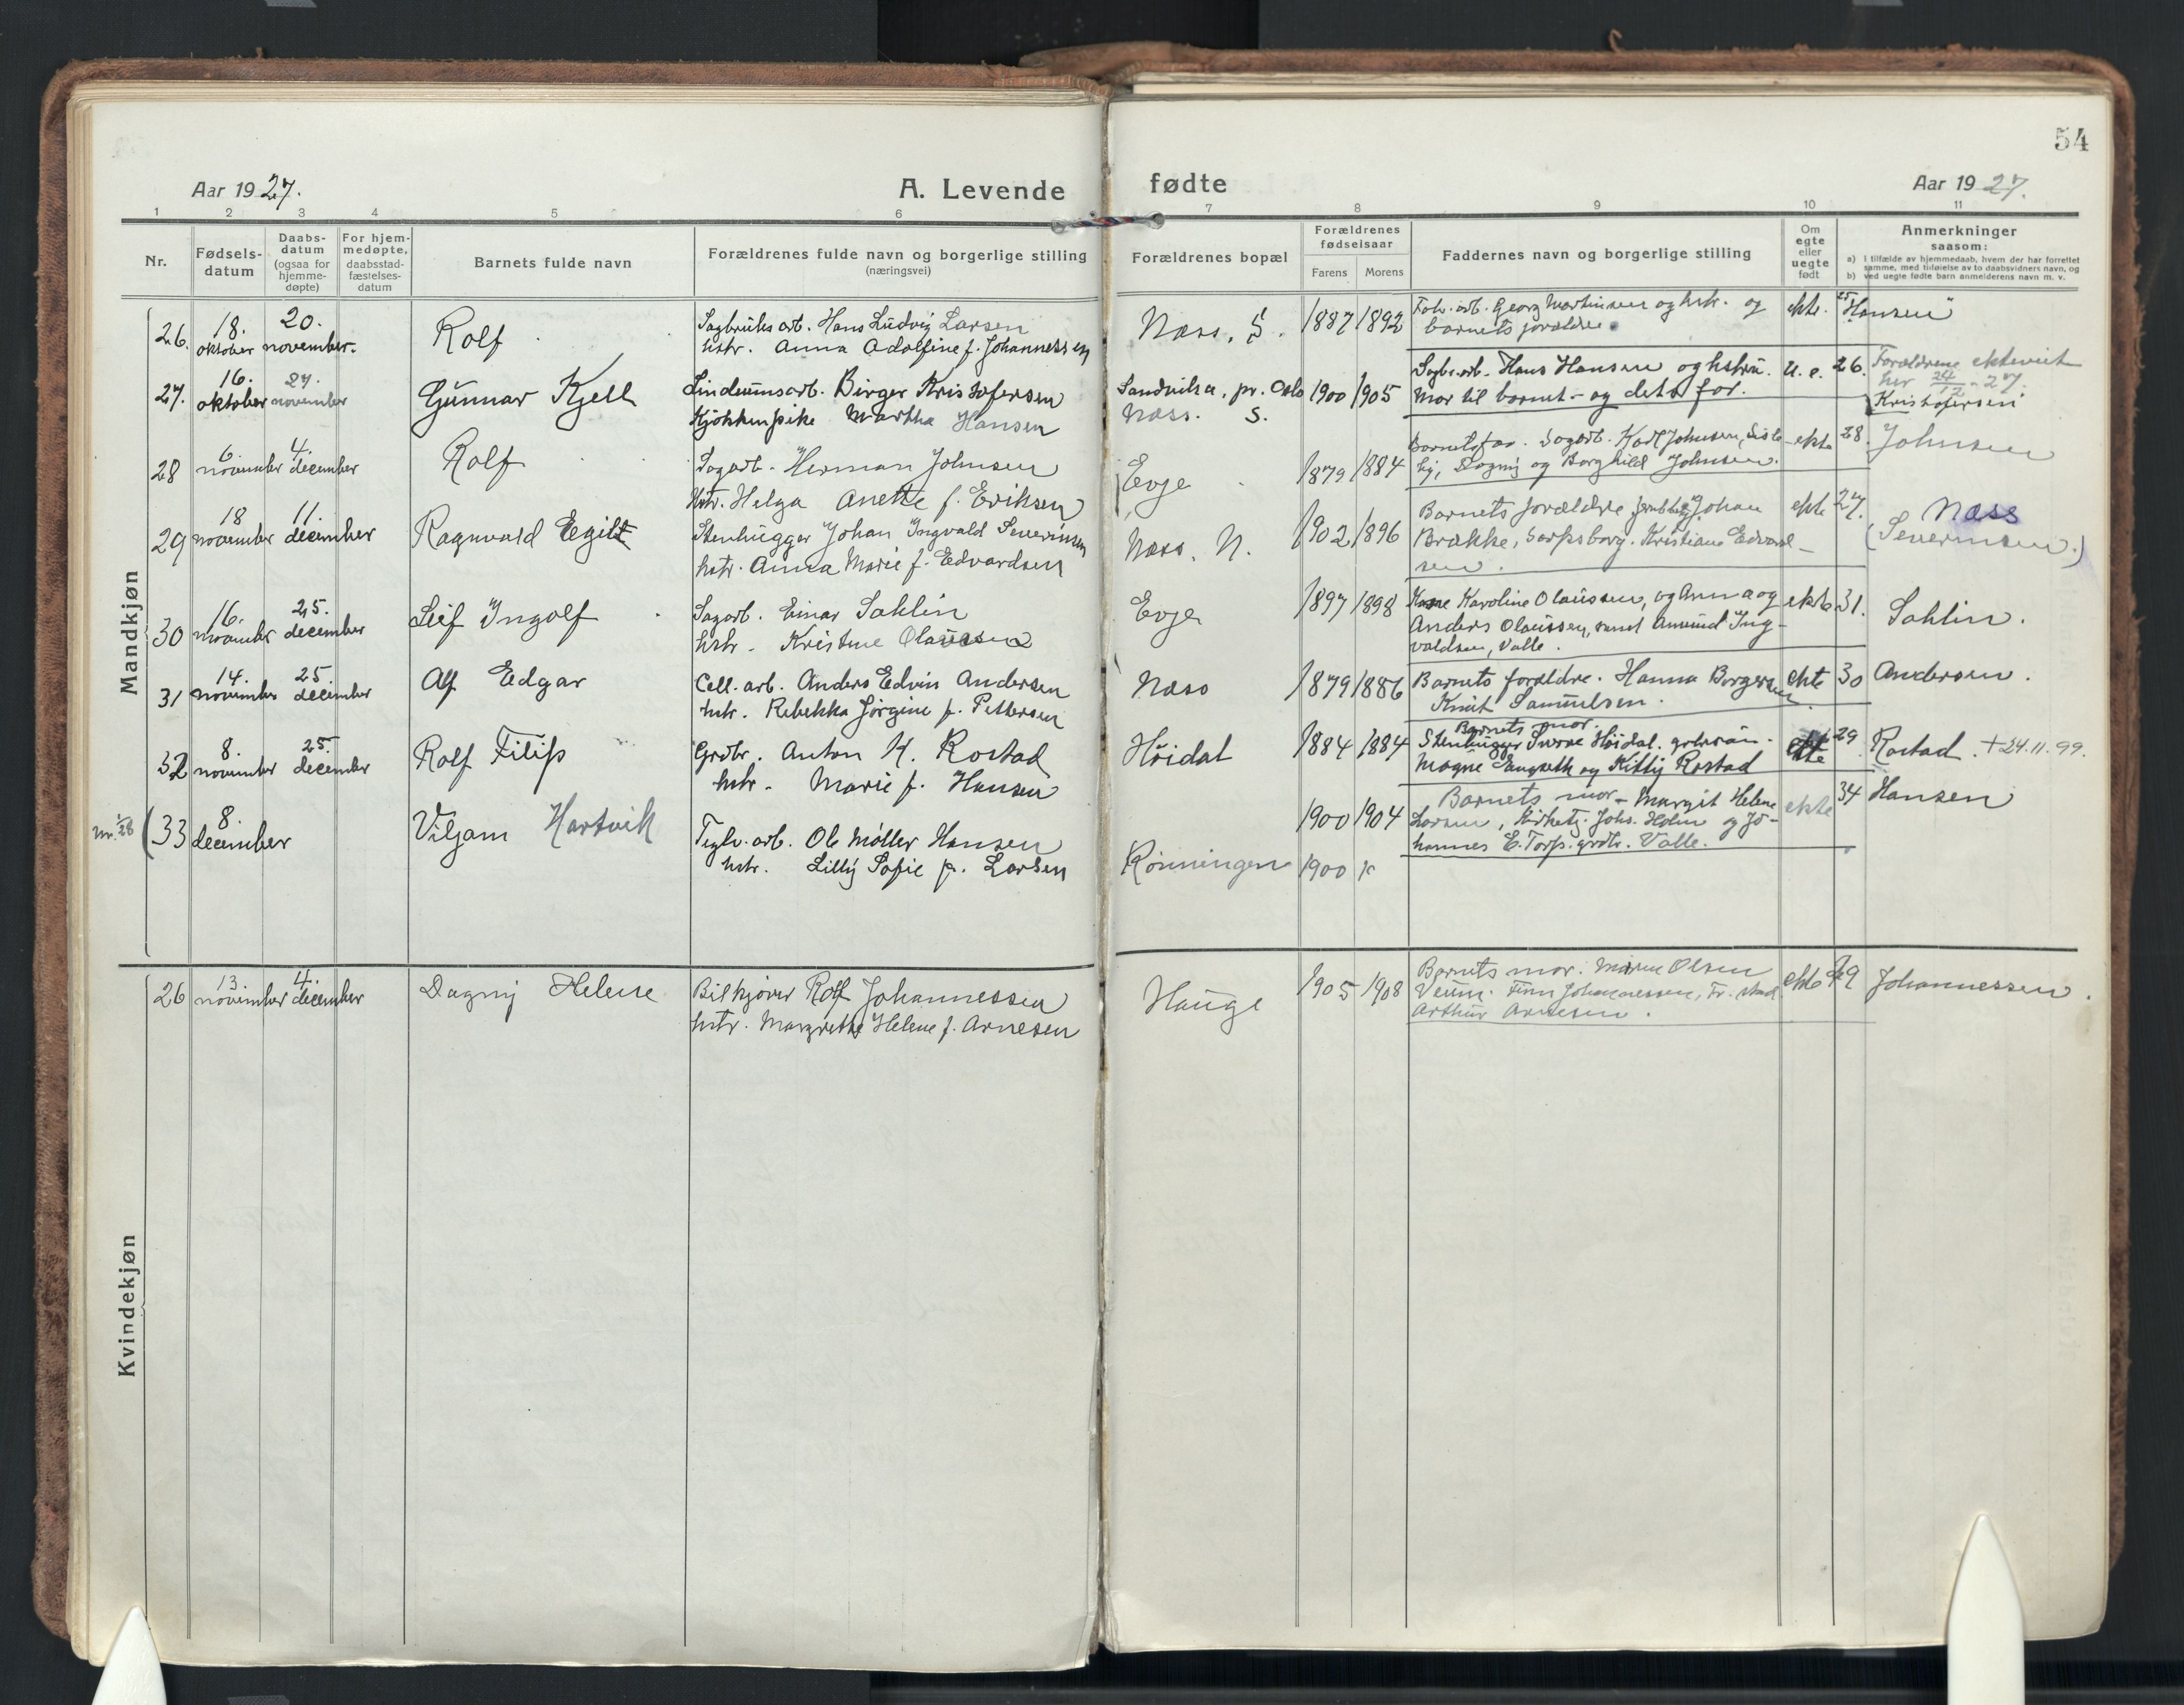 54
Aar 1927. A. Levende fødte Aar 1927.
1 2 3 4 5 6 7 8 9 10 11
Nr.
Fødsels-
datum
Daabs-
datum
(ogsaa for
hjemme-
døpte)
For hjem-
medøpte,
daabsstad-
fæstelses-
datum
Barnets fulde navn
Forældrenes fulde navn og borgerlige stilling
(næringsvei)
Forældrenes bopæl
Forældrenes
fødselsaar
Farens Morens
Faddernes navn og borgerlige stilling
Om
egte
eller
uegte
født
Anmerkninger
saasom:
a) I tilfælde av hjemmedaab, hvem der har forrettet
samme, med tilføielse av to daabsvidners navn, og
b) ved uegte fødte barn anmelderens navn m. v.
Mandkjøn
26. 18. oktober 20. november. Rolf
Sagbruksarb. Hans Ludvig Larsen
hstr. Anna Adolfine f. Johannessen
Næss. S. 1887 1892
Fabr. arb. Georg Martinsen og hstr. og
barnets forældre.
ekte. 25 "Hansen"
27. 16. oktober 27. november Gunnar Kjell
Lindeumsarb. Birger Kristofersen
Kjøkkenpike Martha Hansen
Sandvika, pr. Oslo
Næss. S.
1900 1905
Sagbr. arb. Hans Hansen og hstru.
Mor til barnet - og dets far.
u. e. 26. Forældrene ekteviet
her 24/12-27.
Kristofersen
28 6. november 4. december Rolf
Sagarb. Herman Johnsen
Hstr. Helga Anette f. Eriksen
Evje 1879 1884
Barnets far. Sagarb. Karl Johnsen,
Dagny og Borghild Johnsen.
ekte 28. Johnsen
29 18 november 11. december Ragnvald Egil
Stenhugger Johan Ingvald Severinsen
hstr. Anna Marie f. Edvardsen
Næss. N. 1902 1896
Barnets forældre Johan
Brække, Sarpsborg. Kristiane Edvard-
sen.
ekte 27. Næss
(Severinsen.)
30 16. november 25. december Leif Ingolf
Sagarb. Einar Sahlin
hstr. Kristine Olaussen
Evje 1897 1898
Karoline Olaussen, og Anna og
Anders Olaussen, samt Amund Ing-
valdsen, Valle.
ekte 31. Sahlin.
31 14. november 25. december Alf Edgar
Cell. arb. Anders Edvin Andersen
hstr. Rebekka Jørgine f. Pettersen
Næss 1879 1886
Barnets forældre. Hanna Borgersen
Knut Samuelsen.
ekte 30 Andersen.
32 8. november 25. december Rolf Filip
Grdbr. Anton H. Rostad
hstr. Marie f. Hansen
Høidal 1884 1884
Barnets mor.
Stenhugger Sverre Høidal.
Magne og Kitty Rostad
ekte 29 Rostad. +24.11.99.
33 8. december Viljam Hartvik
Teglv. arb. Ole Møller Hansen
hstr. Lilly Sofie f. Larsen
Rønningen 1900 1904
1900
Barnets mor - Margit Helene
Larsen, Kirketj. Johs. Holm og Jo-
hannes E. Torp. grdbr. Valle.
ekte 34 Hansen
Kvindekjøn
26 13. november 4. december Dagny Helene
Bilkjører Rolf Johannessen
hstr. Margrethe Helene f. Arnesen
Hauge 1905 1908
Barnets mor. Maren Olsen
Veum. Finn Johannessen, Fr. stad.
Arthur Arnesen.
ekte 29 Johannessen.